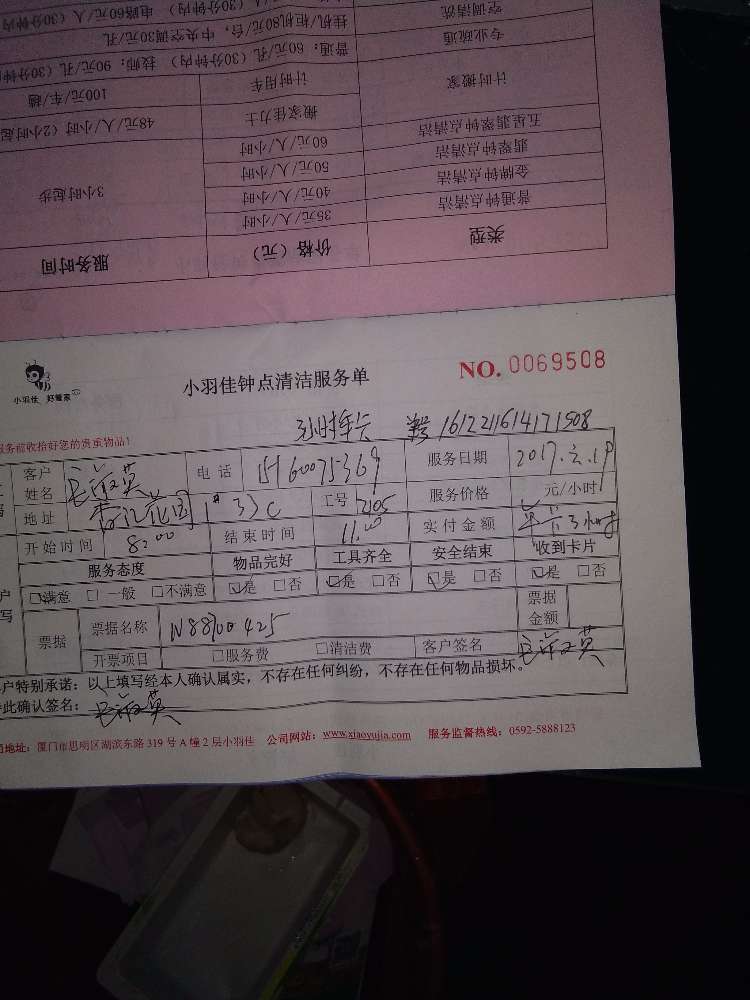 空调清洗 挂机/柜机80元/台，中央空调30元/孔
专业疏通 普通：60元/孔（30分钟内） 技师：90元/孔（30分钟
计时搬家 计时用车 100元/车/趟
搬家佳力士 48元/人/小时（2小时起
五星翡翠钟点清洁 60元/人/小时
翡翠钟点清洁 50元/人/小时
金牌钟点清洁 40元/人/小时 3小时起步
普通钟点清洁 35元/人/小时
类型 价格（元） 服务时间
小羽佳 好管家
小羽佳钟点清洁服务单 NO. 0069508
3小时单卡 1612211614171508
服务前收拾好您的贵重物品！
客户姓名 电话 服务日期 2017.
地址 1# 33C 工号 2105 服务价格 元/小时
开始时间 8:00 结束时间 11:00 实付金额 单卡3小时
服务态度 物品完好 工具齐全 安全结束 收到卡片
满意 一般 不满意 是 否 是 否 是 否 是 否
票据 票据名称 票据金额
开票项目 服务费 清洁费 客户签名
户特别承诺：以上填写经本人确认属实，不存在任何纠纷，不存在任何物品损坏。
此确认签名：
地址：厦门市思明区湖滨东路 319 号 A 幢 2 层小羽佳 公司网站：www.xiaoyujia.com 服务监督热线：0592-5888123